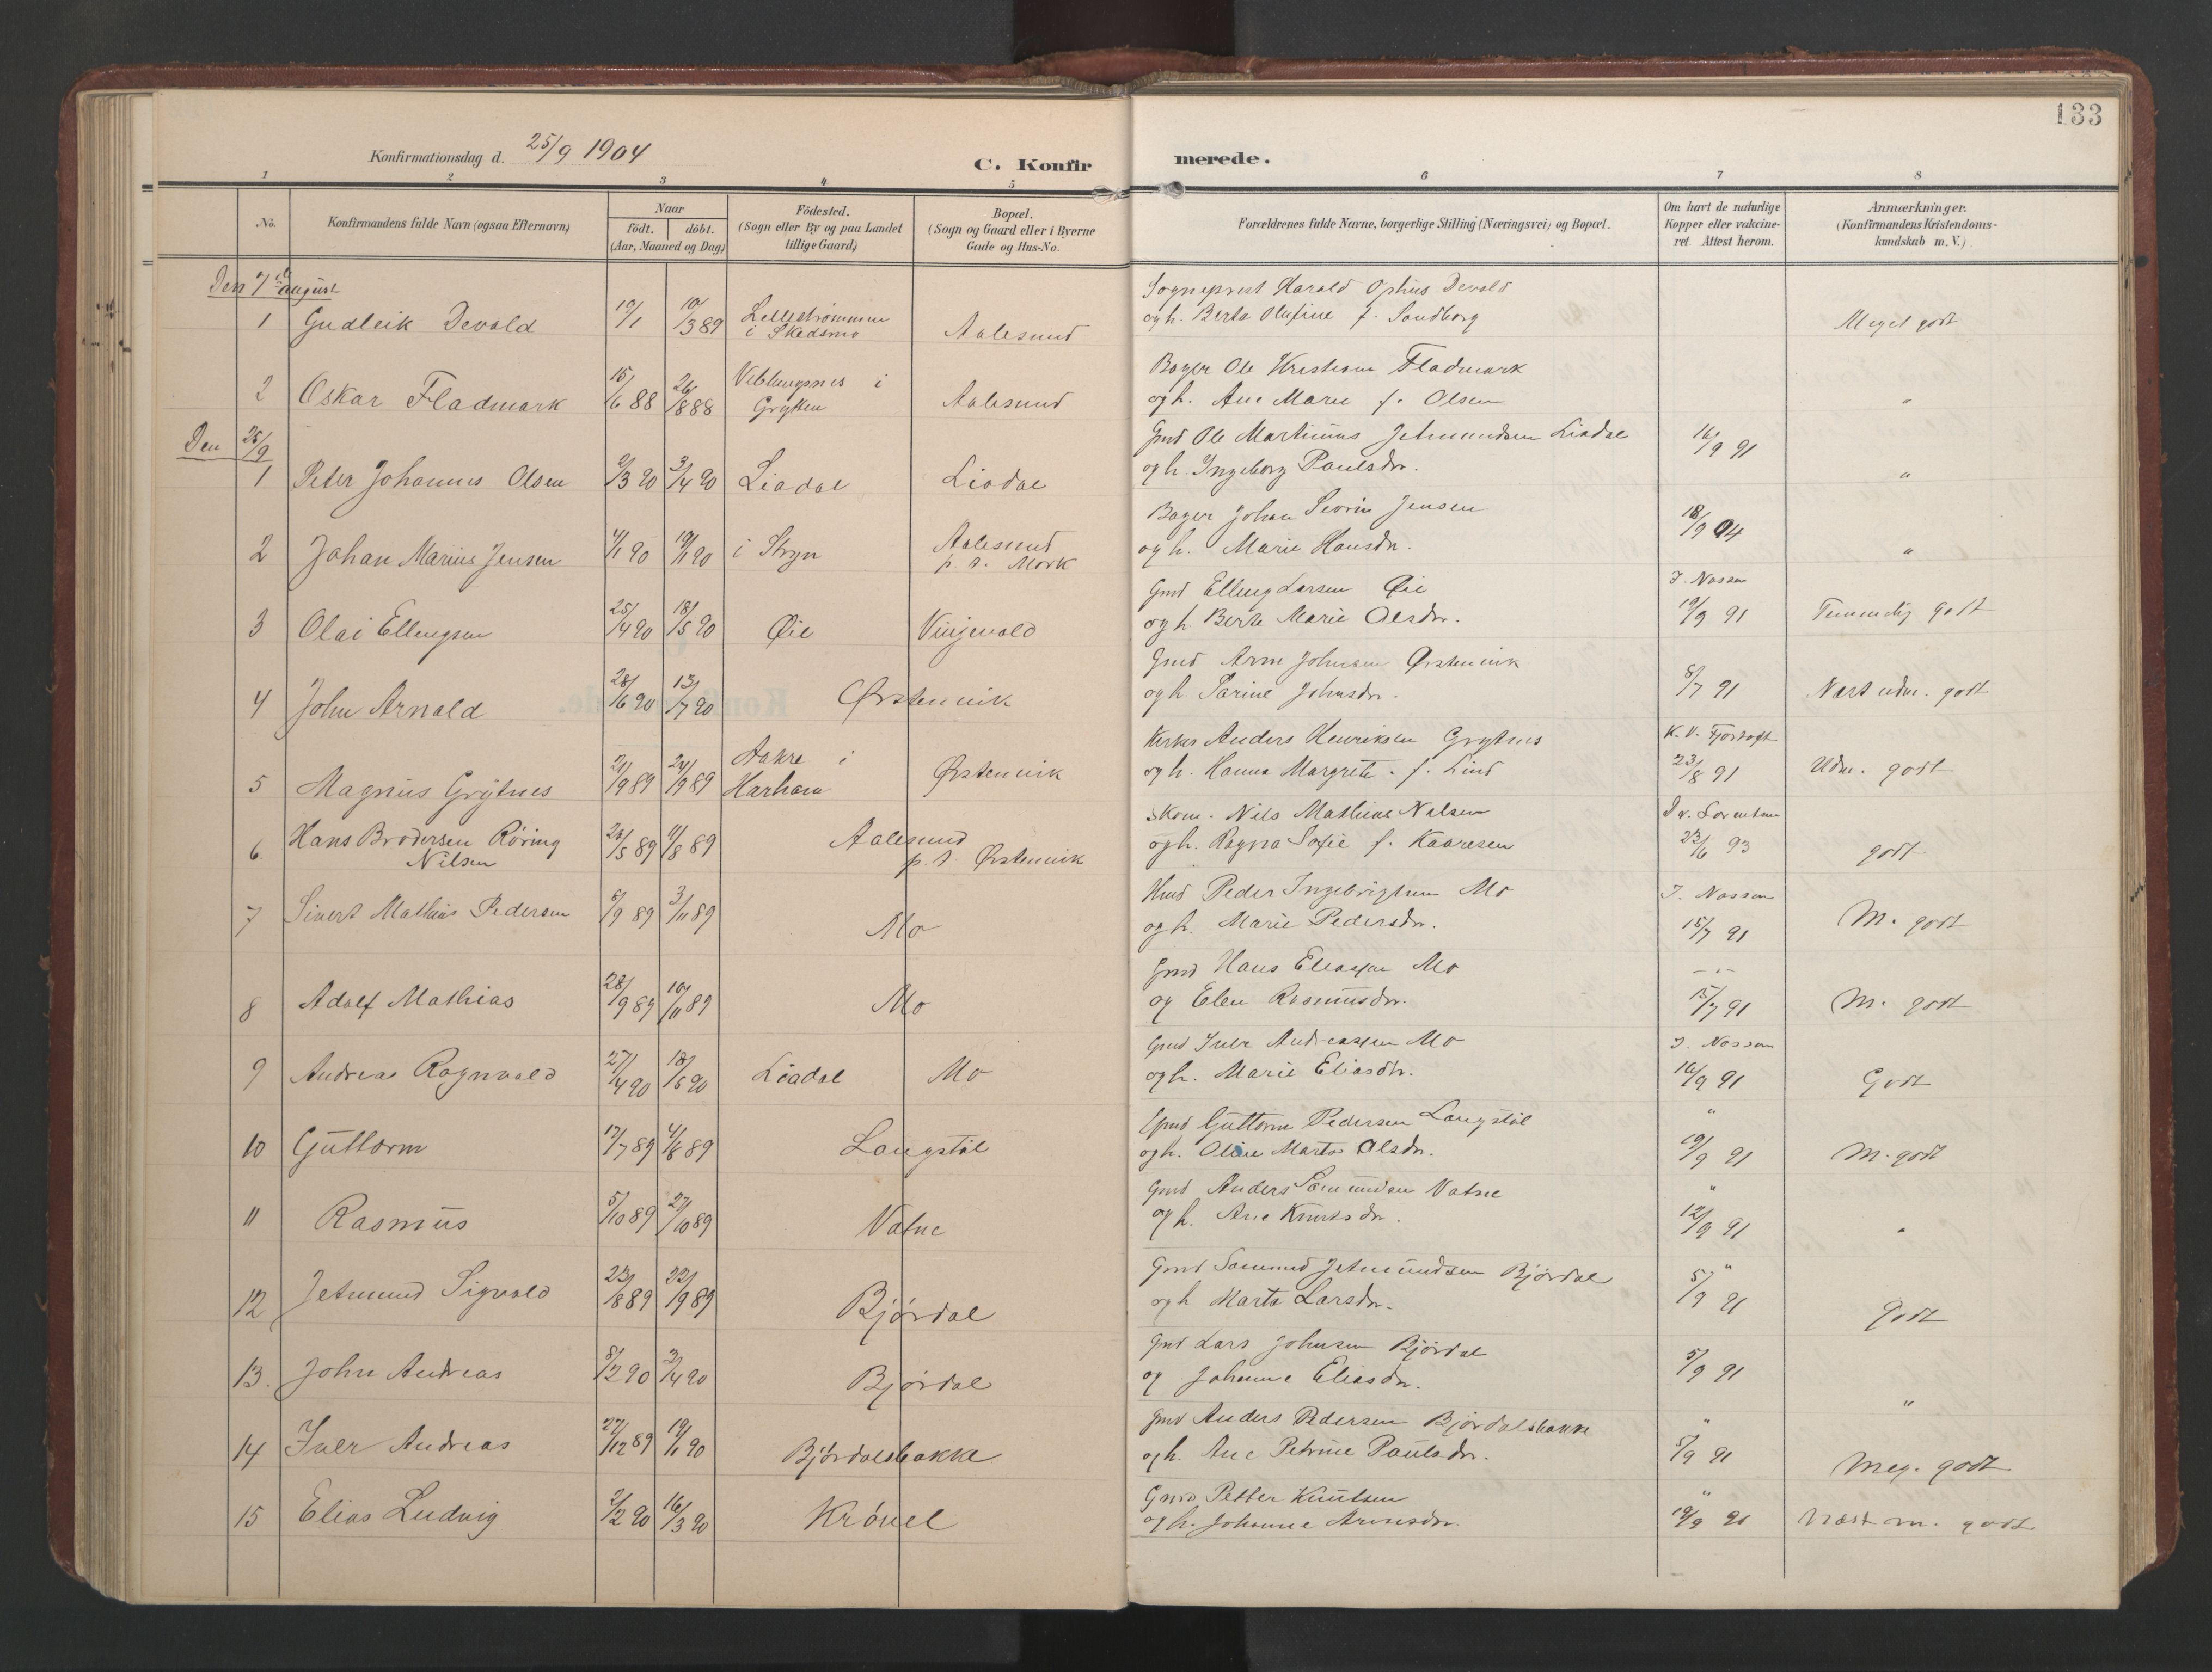 133
Konfirmationsdag d. 25/9 1904
C. Konfirmerede.
1 2 3 4 5 6 7 8
No.
Konfirmandens fulde Navn (ogsaa Efternavn)
Naar
födt. | döbt.
(Aar, Maaned og Dag)
Födested.
(Sogn eller By og paa Landet
tillige Gaard)
Bopæl.
(Sogn og Gaard eller i Byerne
Gade og Hus-No.
Forældrenes fulde Navne, borgerlige Stilling (Næringsvei) og Bopæl.
Om havt de naturlige
Kopper eller vakcine-
ret. Attest herom.
Anmærkninger.
(Konfirmandens Kristendoms-
kundskab m. V.)
Den 7de august
1 Gudleik Devold 19/1 10/3 89 Lillestrømmen
i Skedsmo Aalesund
Sogneprest Harald Ophus Devold
og h. Berta Olufine f. Sandborg
Meget godt
2 Oskar Fladmark 15/6 88 26/8 88 Veblungsnes i
Grytten Aalesund
Bager Ole Kristian Fladmark
og h. Ane Marie f. Olsen
"
Den 25/9
1 Peter Johannes Olsen 2/3 90 3/4 90 Liadal Liadal
Gmd Ole Martinus Jetmundsen Liadal
og h. Ingeborg Paulsdr.
16/9 91
"
2 Johan Marius Jensen 4/1 90 19/1 90 i Stryn Aalesund
p. t. Mork
Bager Johan Severin Jensen
og h. Marie Hansdr.
18/9 04
"
3 Olai Ellingsen 25/4 90 18/5 90 Øie Vinjevold
Gmd Elling Larsen Øie
og h. Berte Marie Olsdr.
J. Nossen
19/9 91
Temmelig godt
4 John Arnold 28/6 90 13/7 90 Ørstenvik
Gmd Arne Johnsen Ørstenvik
og h. Karine Johnsdr.
8/7 91
Næst udm. godt
5 Magnus Grytnes 21/9 89 24/9 89 Aakre i
Harham Ørstenvik
Kirkes Anders Henriksen Grytnes
og h. Hanna Margrete f. Lind
K. V. Fjørtoft
23/8 91
Udm. godt
6. Hans Brodersen Røring
Nilsen 23/5 89 11/8 89 Aalesund
p. t. Ørstenvik
Skom. Nils Mathias Nilsen
og h. Ragna Sofie f. Kaaresen
Dr. Lorentsen
23/6 93
godt
7 Sivert Mathias Pedersen 8/9 89 3/11 89 Mo
Hmd Peder Ingebrigtsen Mo
og h. Marie Pedersdr.
J. Nossen
15/7 91
M. godt
8 Adolf Mathias 28/9 89 10/11 89 Mo
Gmd Hans Eliassen Mo
og Elen Rasmusdr.
- " -
15/7 91
M. godt
9 Andreas Ragnvald 27/4 90 18/5 90 Liadal Mo
Gmd Iver Andreassen Mo
og h. Marie Eliasdr.
J. Nossen
16/9 91
Godt
10 Guttorm 17/7 89 4/8 89 Langstøl
Gmd Guttorm Pedersen Langstøl
og h. Oline Marta Olsdr.
"
19/9 91
M. godt
11 Rasmus 5/10 89 27/10 89 Vatne
Gmd Anders Samundsen Vatne
og h. Ane Knutsdr.
"
12/9 91
"
12 Jetmund Sigvald 23/8 89 22/9 89 Bjørdal
Gmd Samund Jetmundsen Bjørdal
og h Marta Larsdr.
"
5/9 91
Godt
13. John Andreas 8/2 90 3/4 90 Bjørdal
Gmd Lars Johnsen Bjørdal
og Johanne Eliasdr.
5/9 91
"
14 Iver Andreas 27/12 89 19/1 90 Bjørdalsbakke
Gmd Anders Pedersen Bjørdalsbakke
og h. Ane Petrine Paulsdr.
"
5/9 91
Meg. godt
15 Elias Ludvig 2/2 90 16/3 90 Krøvel
Gmd Petter Knutsen
og h. Johanne Arnesdr.
"
19/9 91
Næst m. godt